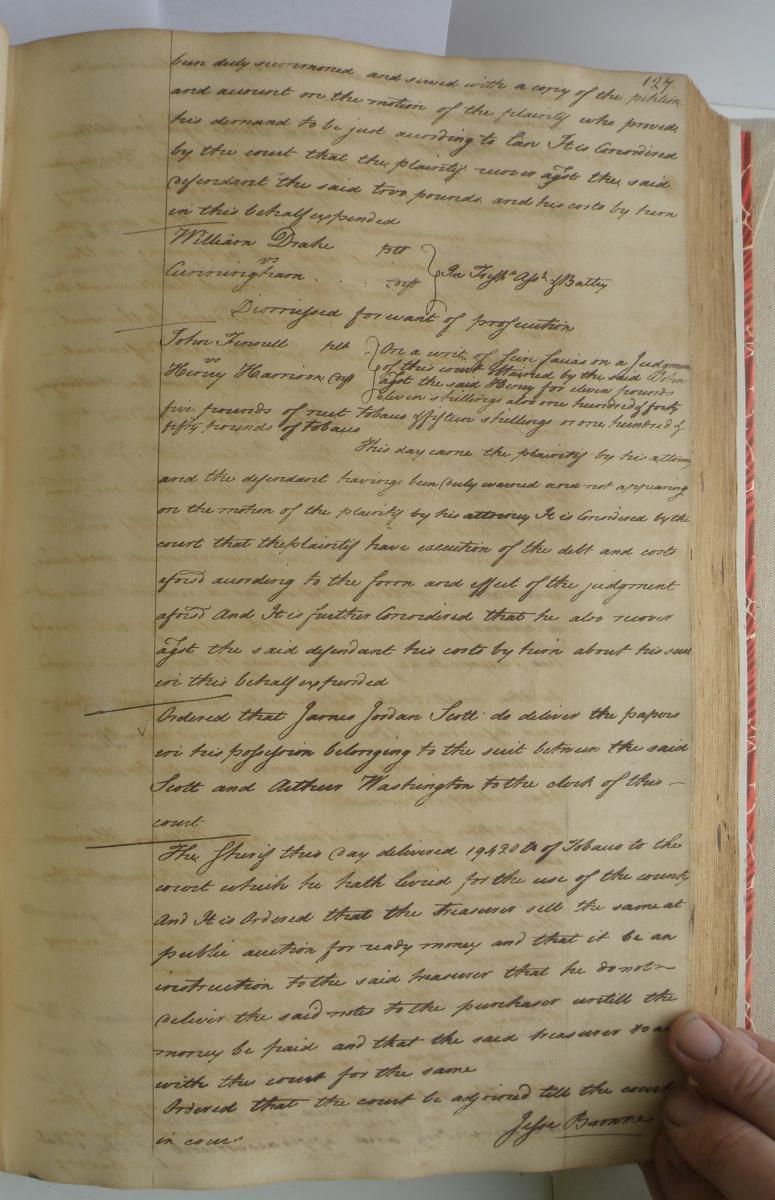 127
been duly summoned and served with a copy of the petition
and account on the motion of the plaintif who proved
his demand to be just acording to Law It is Concidered
by the court that the plaintif recover agst the said
defendant the said two pounds and his costs by him
in this behalf expended
William Drake plt
vs
Cunningham deft
In Tresps Asst & Batley
Dismissed for want of prosecution
John Finnell plt
vs
Henry Harrison deft
On a writ of fieri facias on a Judgment
of this court obtained by the said John
agst the said Henry for eleven pounds
eleven shillings also one hundred & forty
five pounds of nett tobaco & fifteen shillings or one hundred &
fifty pounds of tobaco
This day came the plaintif by his attorney
and the defendant having been duly warned and not appearing
on the motion of the plaintif by his attorney It is Concidered by the
court that the plaintif have execution of the debt and costs
aforsd acording to the form and effect of the judgment
aforsd And It is further Concidered that he also recover
agst the said defendant his costs by him about his suit
in this behalf expended
Ordered that James Jordan Scott do deliver the papers
in his possession belonging to the suit between the said
Scott and Arthur Washington to the clerk of this
court
The Sherif this day delivered 19420 lb of Tobaco to the
court which he hath levied for the use of the county
And It is Ordered that the treasurer sell the same at
public auction for ready money and that it be an
instruction to the said treasurer that he do not
deliver the said notes to the purchaser untill the
money be paid and that the said treasurer do
with the court for the same
Ordered that the court be adjorned till the court
in course
Jesse Browne